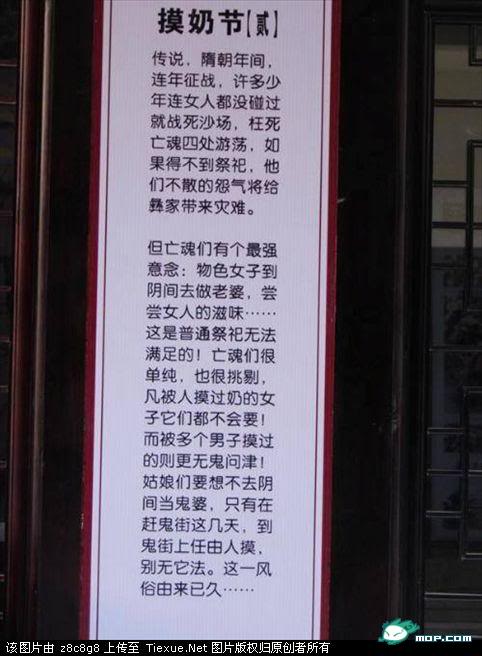 摸奶节【贰】
传说，隋朝年间，
连年征战，许多少
年连女人都没碰过
就战死沙场，枉死
亡魂四处游荡，如
果得不到祭祀，他
们不散的怨气将给
彝家带来灾难。
但亡魂们有个最强
意念：物色女子到
阴间去做老婆，尝
尝女人的滋味……
这是普通祭祀无法
满足的！亡魂们很
单纯，也很挑剔，
凡被人摸过奶的女
子它们都不会要！
而被多个男子摸过
的则更无鬼问津！
姑娘们要想不去阴
间当鬼婆，只有在
赶鬼街这几天，到
鬼街上任由人摸，
别无它法。这一风
俗由来已久……
该图片由 z8c8g8 上传至 Tiexue.Net 图片版权归原创者所有
mop.com